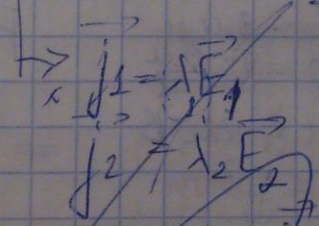 j⃗1 = λE⃗1
j⃗2 = λ2E⃗2